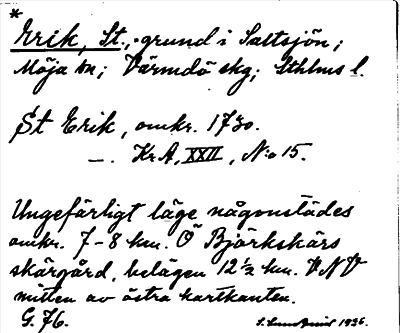 *
Erik, St., grund i Saltsjön;
Möja sn; Värmdö skg; Sthlms l.
St Erik, omkr. 1730.
—. Kr A, XXII, N:o 15.
Ungefärligt läge någonstädes
omkr. 7-8 km. Ö Björkskärs
skärgård, belägen 12½ km. VNV
mitten av östra kartkanten.
G. 76.
1936.